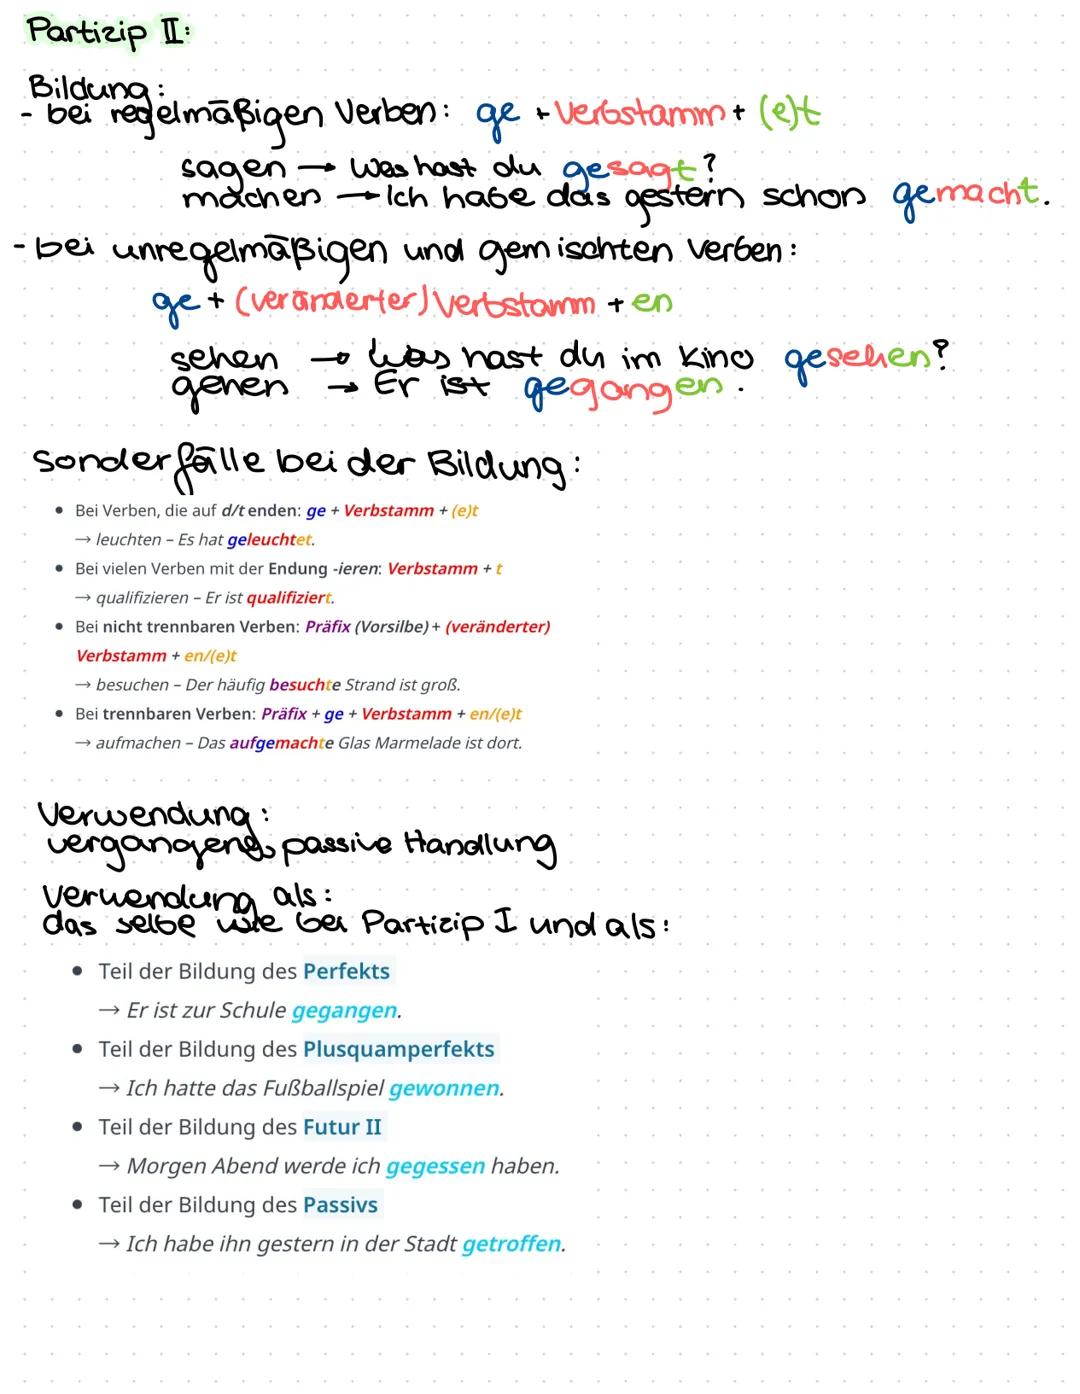 Partizip II:
Bildung:
- bei regelmäßigen Verben: ge + Verbstamm + (e)t
sagen → Was hast du gesagt?
machen → Ich habe das gestern schon gemacht.
- bei unregelmäßigen und gemischten Verben:
ge + (veränderter) Verbstamm + en
sehen → Was hast du im Kino gesehen?
gehen → Er ist gegangen.
Sonderfälle bei der Bildung:
• Bei Verben, die auf d/t enden: ge + Verbstamm + (e)t
→ leuchten – Es hat geleuchtet.
• Bei vielen Verben mit der Endung -ieren: Verbstamm + t
→ qualifizieren – Er ist qualifiziert.
• Bei nicht trennbaren Verben: Präfix (Vorsilbe) + (veränderter)
Verbstamm + en/(e)t
→ besuchen – Der häufig besuchte Strand ist groß.
• Bei trennbaren Verben: Präfix + ge + Verbstamm + en/(e)t
→ aufmachen – Das aufgemachte Glas Marmelade ist dort.
Verwendung:
vergangene, passive Handlung
Verwendung als:
das selbe wie bei Partizip I und als:
• Teil der Bildung des Perfekts
→ Er ist zur Schule gegangen.
• Teil der Bildung des Plusquamperfekts
→ Ich hatte das Fußballspiel gewonnen.
• Teil der Bildung des Futur II
→ Morgen Abend werde ich gegessen haben.
• Teil der Bildung des Passivs
→ Ich habe ihn gestern in der Stadt getroffen.